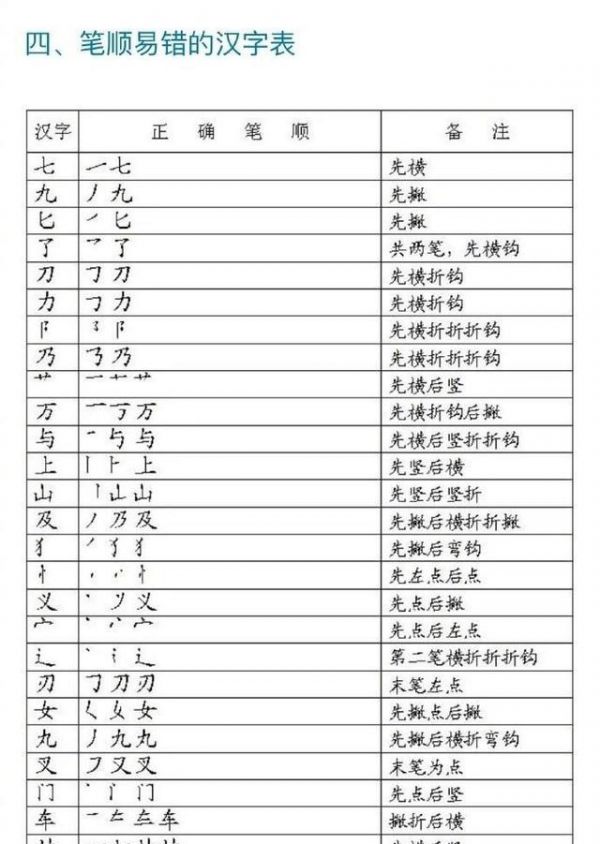 四、笔顺易错的汉字表
汉字 正确笔顺 备注
七 一七 先横
九 丿九 先撇
匕 ㇒匕 先撇
了 乛了 共两笔，先横钩
刀 𠃌刀 先横折钩
力 𠃌力 先横折钩
阝 ㇌阝 先横折折折钩
乃 ㇡乃 先横折折折钩
艹 一十艹 先横后竖
万 一丆万 先横折钩后撇
与 一与与 先横后竖折折钩
上 丨⺊上 先竖后横
山 丨山山 先竖后竖折
及 丿乃及 先撇后横折折撇
犭 ㇒犭犭 先撇后弯钩
忄 丶丷忄 先左点后点
义 丶丷义 先点后撇
宀 丶丷宀 先点后左点
辶 丶讠辶 第二笔横折折折钩
刃 𠃌刀刃 末笔左点
女 𡿨女女 先撇点后撇
丸 丿九丸 先撇后横折弯钩
叉 フ又叉 末笔为点
门 丶门 先点后竖
车 一车 撇折后横